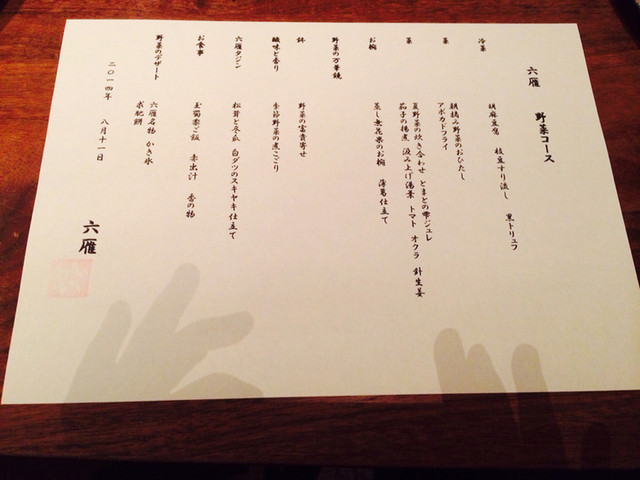 六雁 野菜コース
冷菜 胡麻豆腐 枝豆すり流し 黒トリュフ
菜 朝摘み野菜のおひたし
アボカドフライ
菜 夏野菜の炊き合わせ とまとの雫ジュレ
茄子の揚煮 汲み上げ湯葉 トマト オクラ 針生姜
お椀 蒸し無花果のお椀 薄葛仕立て
野菜の万華鏡
鉢 野菜の富貴寄せ
醸味と香り 季節野菜の煮こごり
六雁タジン 松茸と冬瓜 白ダツのスキヤキ仕立て
お食事 玉蜀黍ご飯 赤出汁 香の物
野菜のデザート 六雁名物 かき氷
求肥餅
二〇一四年 八月十一日
六雁